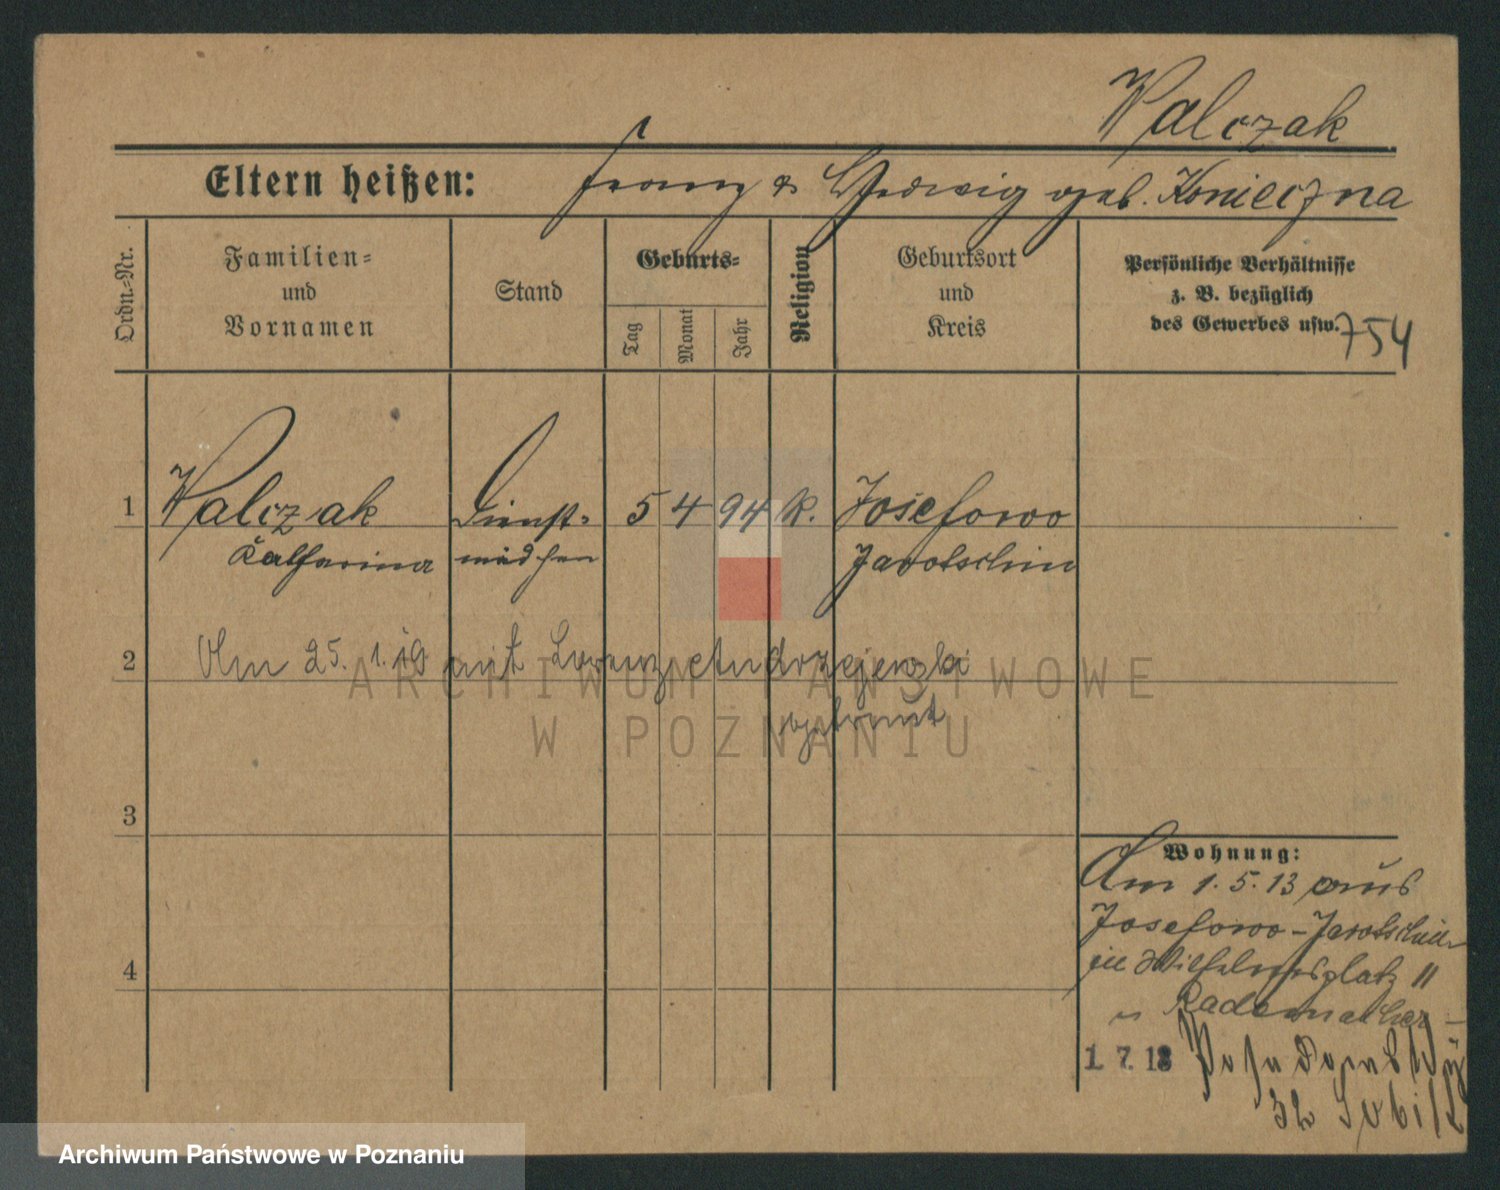 Walczak
Eltern heißen: Franz & Hedwig geb. Konieczna
Ordn.-Nr.
Familien- und Vornamen
Stand
Geburts-
Tag
Monat
Jahr
Religion
Geburtsort und Kreis
Persönliche Verhältnisse
z. B. bezüglich
des Gewerbes usw.
754
1 Walczak Dienst- 5 4 94 k. Josefowo
Katharina mädchen Jarotschin
2 Am 25. 1. 19 mit Lorenz Andrzejewski
getraut
ARCHIWUM PAŃSTWOWE
W POZNANIU
3
Wohnung:
Am 1. 5. 13 aus
Josefowo - Jarotschin
in Wilhelmsplatz 11
4
Rademacher
1. 7. 18 Posadowski
32
Archiwum Państwowe w Poznaniu